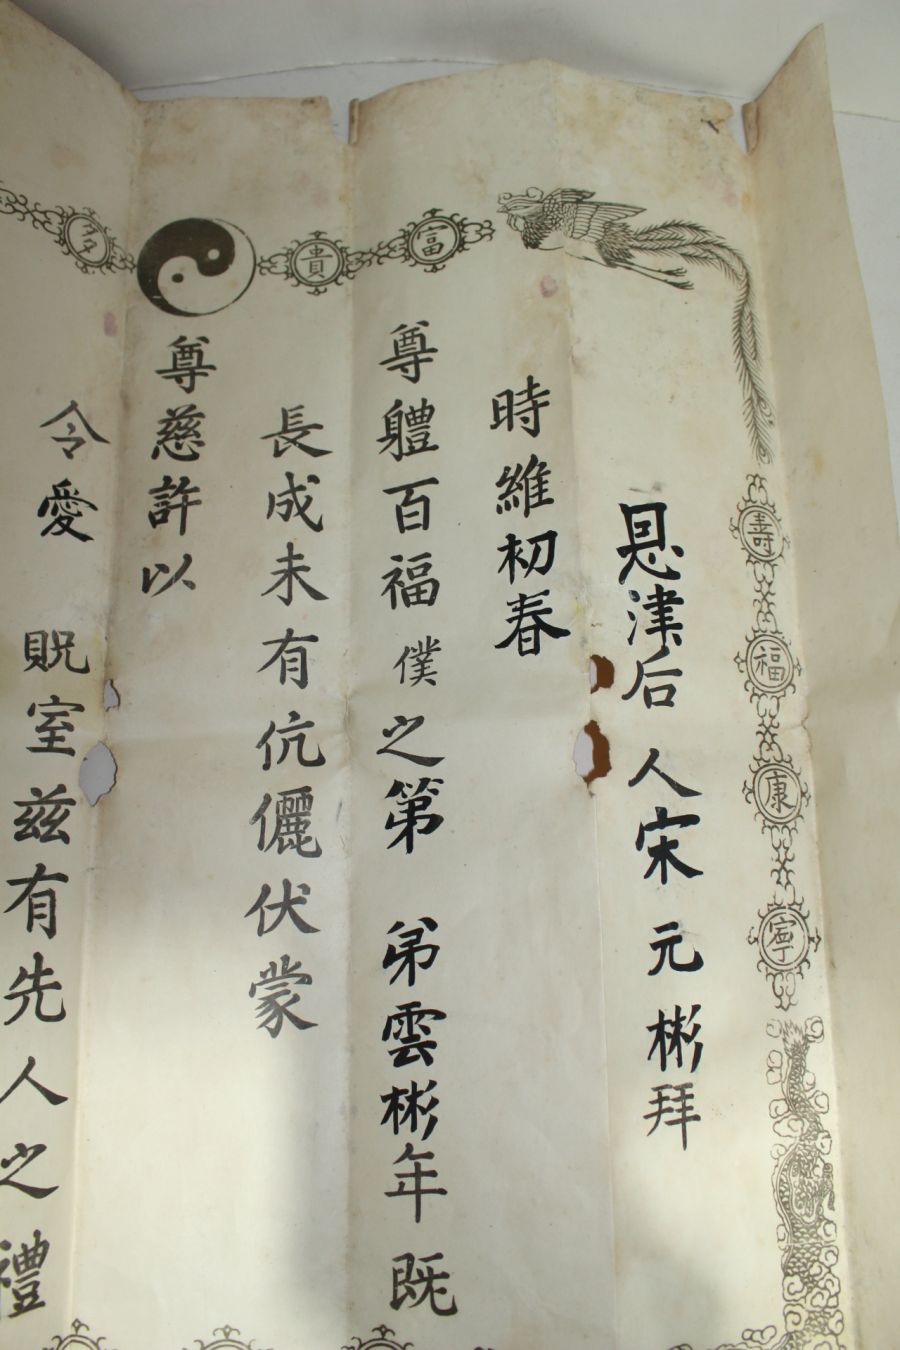 恩津后人宋元彬拜
時維初春
尊體百福僕之第 弟雲彬年既
長成未有伉儷伏蒙
尊慈許以
令愛 貺室茲有先人之禮
富
貴
多
壽
福
康
寧